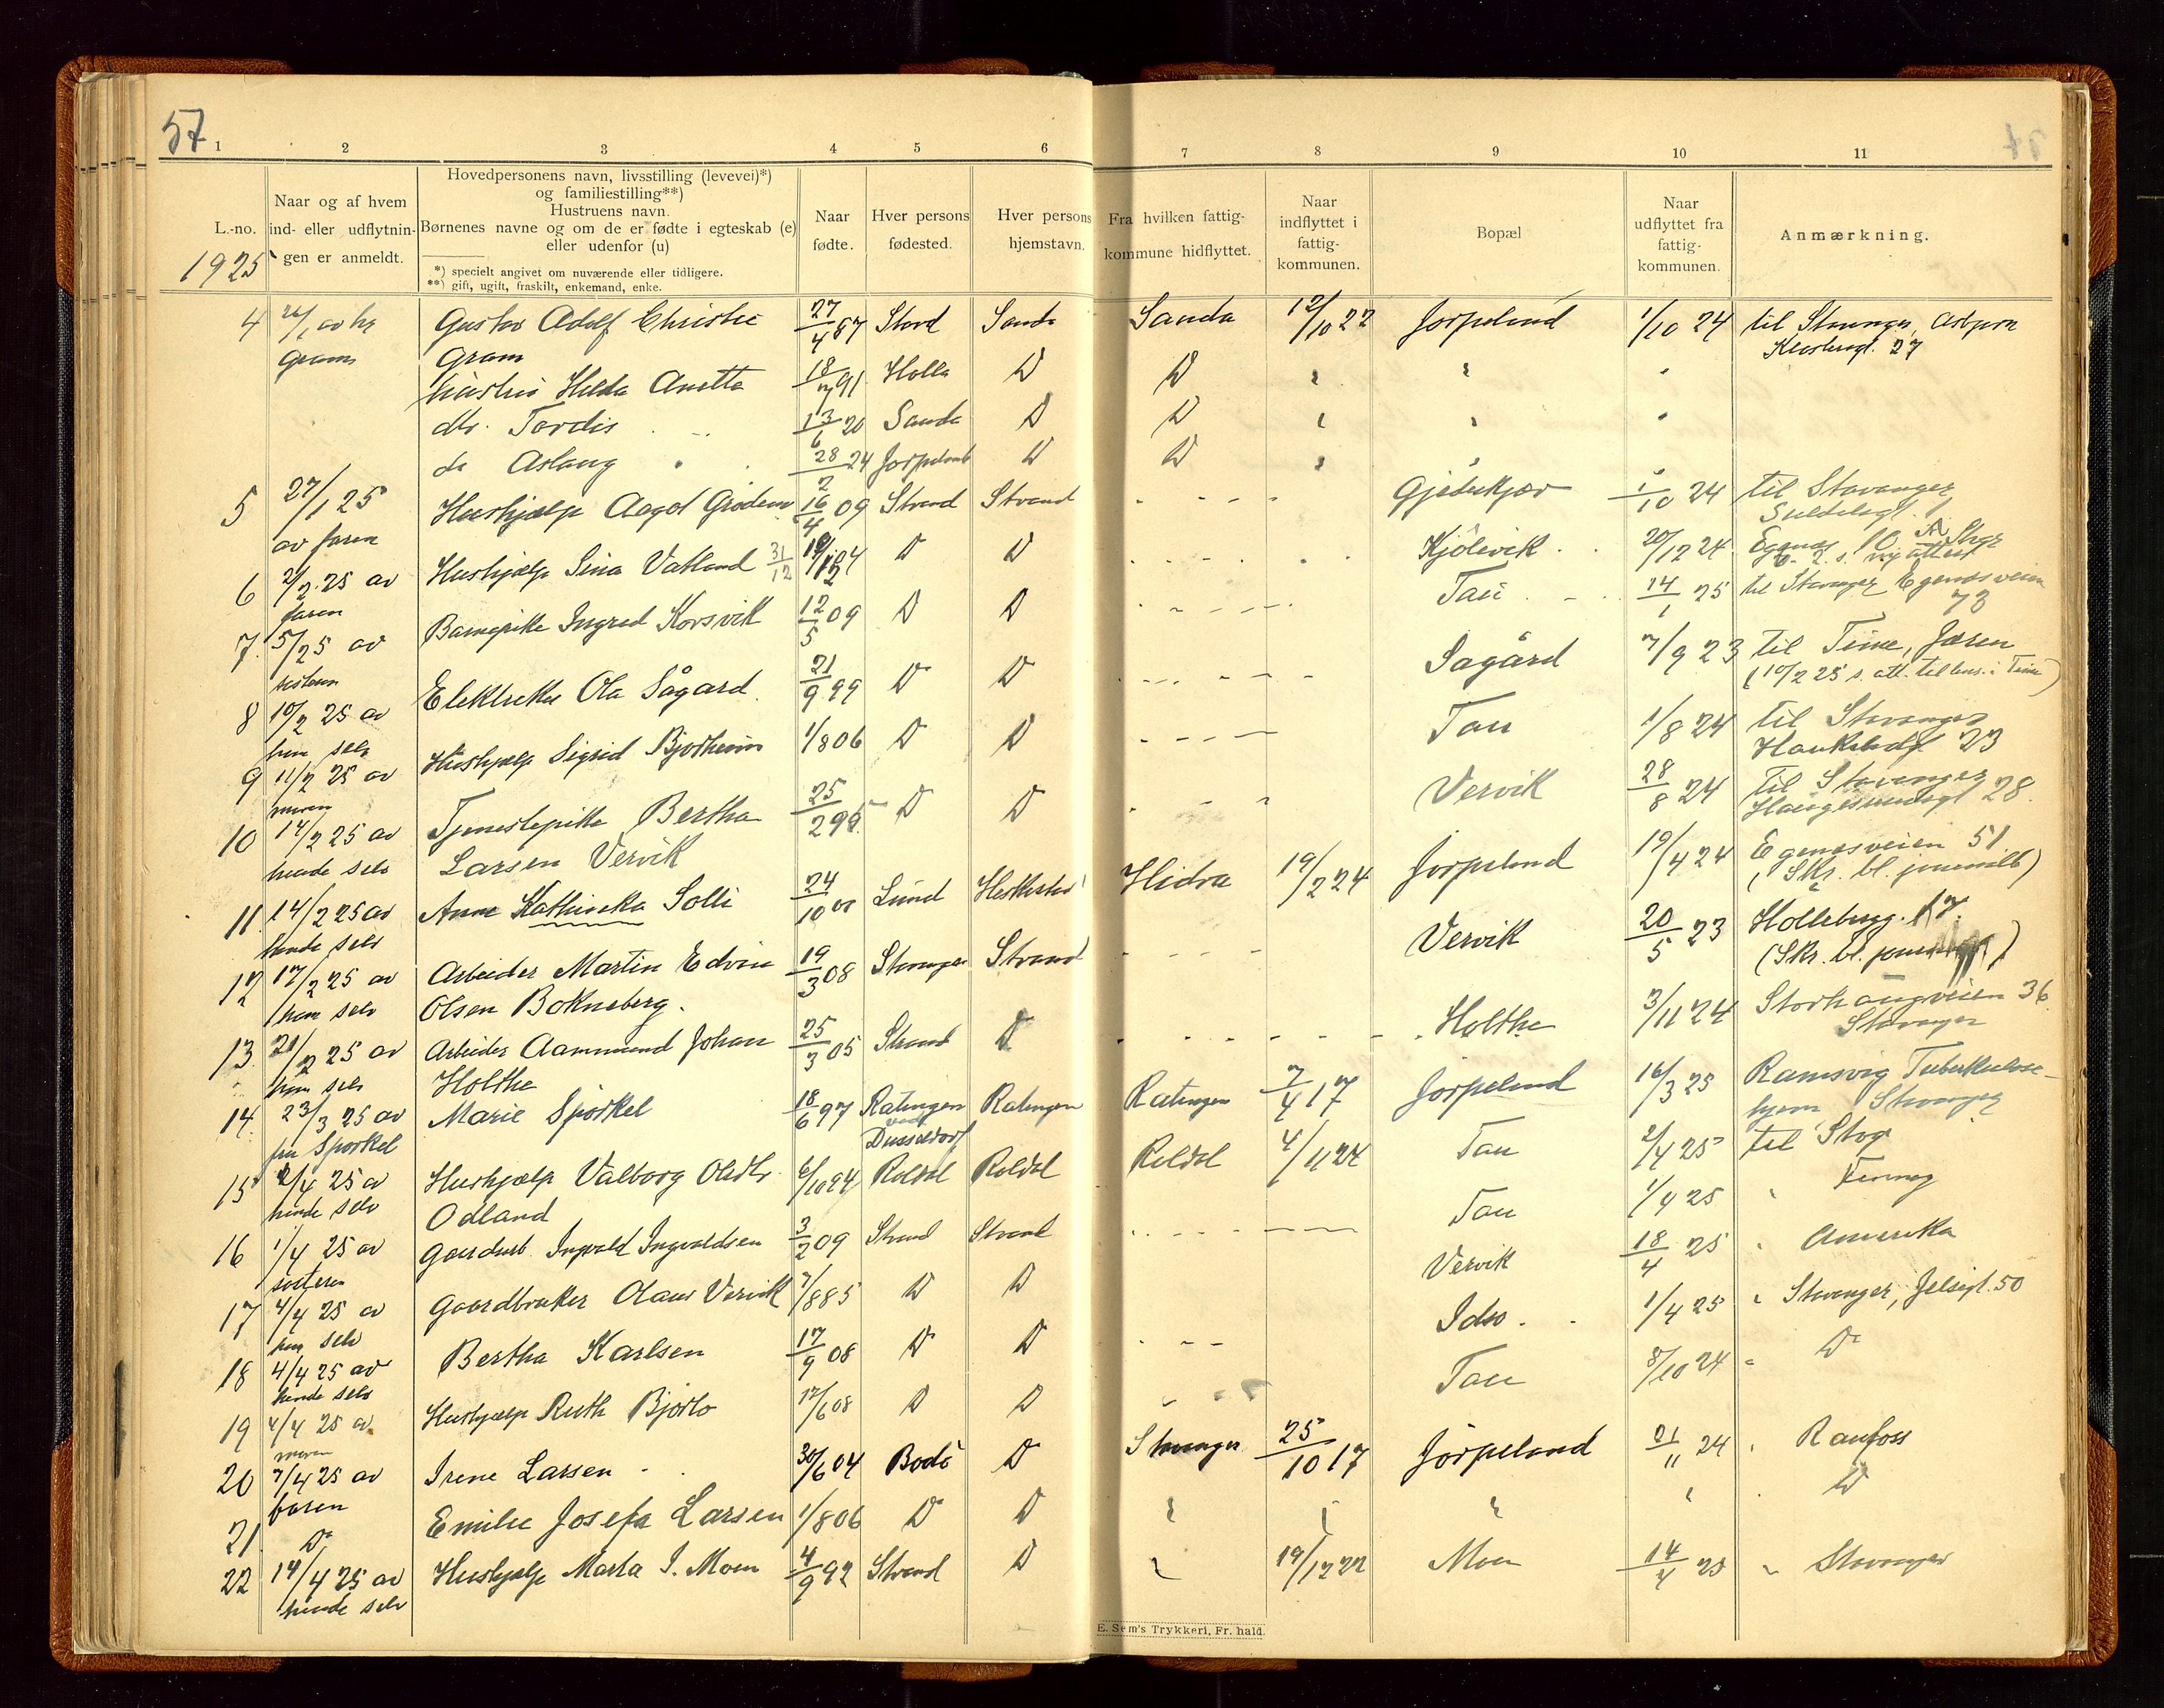 57
1 2 3 4 5 6 7 8 9 10 11
L.-no.
1925
Naar og af hvem
ind- eller udflytnin-
gen er anmeldt.
Hovedpersonens navn, livsstilling (levevei)*)
og familiestilling**)
Hustruens navn.
Børnenes navne og om de er fødte i egteskab (e)
eller udenfor (u)
*) specielt angivet om nuværende eller tidligere.
**) gift, ugift, fraskilt, enkemand, enke.
Naar
fødte.
Hver persons
fødested.
Hver persons
hjemstavn.
Fra hvilken fattig-
kommune hidflyttet.
Naar
indflyttet i
fattig-
kommunen.
Bopæl
Naar
udflyttet fra
fattig-
kommunen.
Anmærkning.
4 av hr Gustav Adolf Christie 27/4 87 Stord Sanda Sanda 12/10 22 Jørpeland 1/10 24 til Stavanger, Asbjørn
Grams Gram Klostersgt. 27
hustru Hilda Anetta 18/7 91 Holla D D
dtr. Tordis 13/6 20 Sanda D D
do Aslaug 28/2 24 Jørpeland D D
5 27/1 25 Hushjælp Aagot Grødem 16/4 09 Strand Strand - - - - 1/10 24 til Stavanger
av faren Suldalsgt. 1
6 2/2 25 av Hushjælp Sina Vatland 31/12 04 D D Kjölevik 20/12 24 Egenes 10 A Stvgr
faren ny attest
7. 5/2 25 av Barnepike Ingrid Korsvik 12/5 09 D D - - - - Tau 14/1 25 til Stavanger Egenesveien
søsteren 73
8 10/2 25 av Elektriker Ola Sågard 21/9 99 D D - - - - Sagård 7/9 23 til Time, Jæren
ham selv (10/2 25 s. att. til lens. i Time)
9 11/2 25 av Hushjælp Sigrid Bjørheim 1/8 06 D D - - - - Tau 1/8 24 til Stavanger
moren Haukelidgt 23
10 14/2 25 av Tjenestepike Bertha 25/2 95 D D - - - Vervik 28/8 24 Til Stavanger
hende selv Larsen Vervik Haugesundsgt 28.
11. 14/2 25 av Anne Kathinka Solli 24/10 00 Lund Heskestad Hidra 19/2 24 Jørpeland 19/4 24 Egenesveien 51
hende selv (Skr. bl.
12 17/2 25 av Arbeider Martin Edvin 19/3 08 Stavanger Strand - - - - Vervik 20/5 23 Hollebergg. 17.
ham selv Olsen Bokneberg. (Skr. bl.
13. 21/2 25 av Arbeider Aammund Johan 25/3 05 Strand D - - - - Holthe 3/11 24 Storhaugveien 36
ham selv Holthe Stavanger
14. 23/3 25 av Marie Spörkel 18/6 97 Ratingen Ratingen Ratingen 7/4 17 Jørpeland 16/3 25 Ramsvig Tuberkulose-
fru Sporkel ved Dusseldorf hjem Stavanger
15 2/4 25 av Hushjælp Valborg Olsdtr. 6/10 94 Røldal Røldal Røldal 4/11 24 Tau 2/4 25 til Stvgr
hende selv Odland
16 1/4 25 av Gaardsarb. Ingvald Ingvaldsen 3/2 09 Strand Strand - - - - Tau 1/4 25 " Finnøy
søsteren
17 4/4 25 av Gaardbruker Olaus Vervik 7/8 85 D D Vervik 18/4 25 " Amerika
ham selv
18 4/4 25 av Bertha Karlsen 17/9 08 D D - - - Idsø 1/4 25 " Stavanger, Jelsagt. 50
hende selv
19 4/4 25 av Hushjælp Ruth Bjørlo 17/6 08 D D - - - Tau 8/10 24 " Do
moren
20 7/4 25 av Irene Larsen 30/6 04 Bodö D Stavanger 25/10 17 Jørpeland 21/11 24 " Raufoss
faren
21. Do Emilie Josefa Larsen 1/8 06 D D " " " " " D
22 14/4 25 av Hushjælp Marta I. Moen 4/9 92 Strand D " 19/12 22 Moen 14/4 25 " Stavanger
hende selv
E. Sem's Trykkeri, Fr. hald.